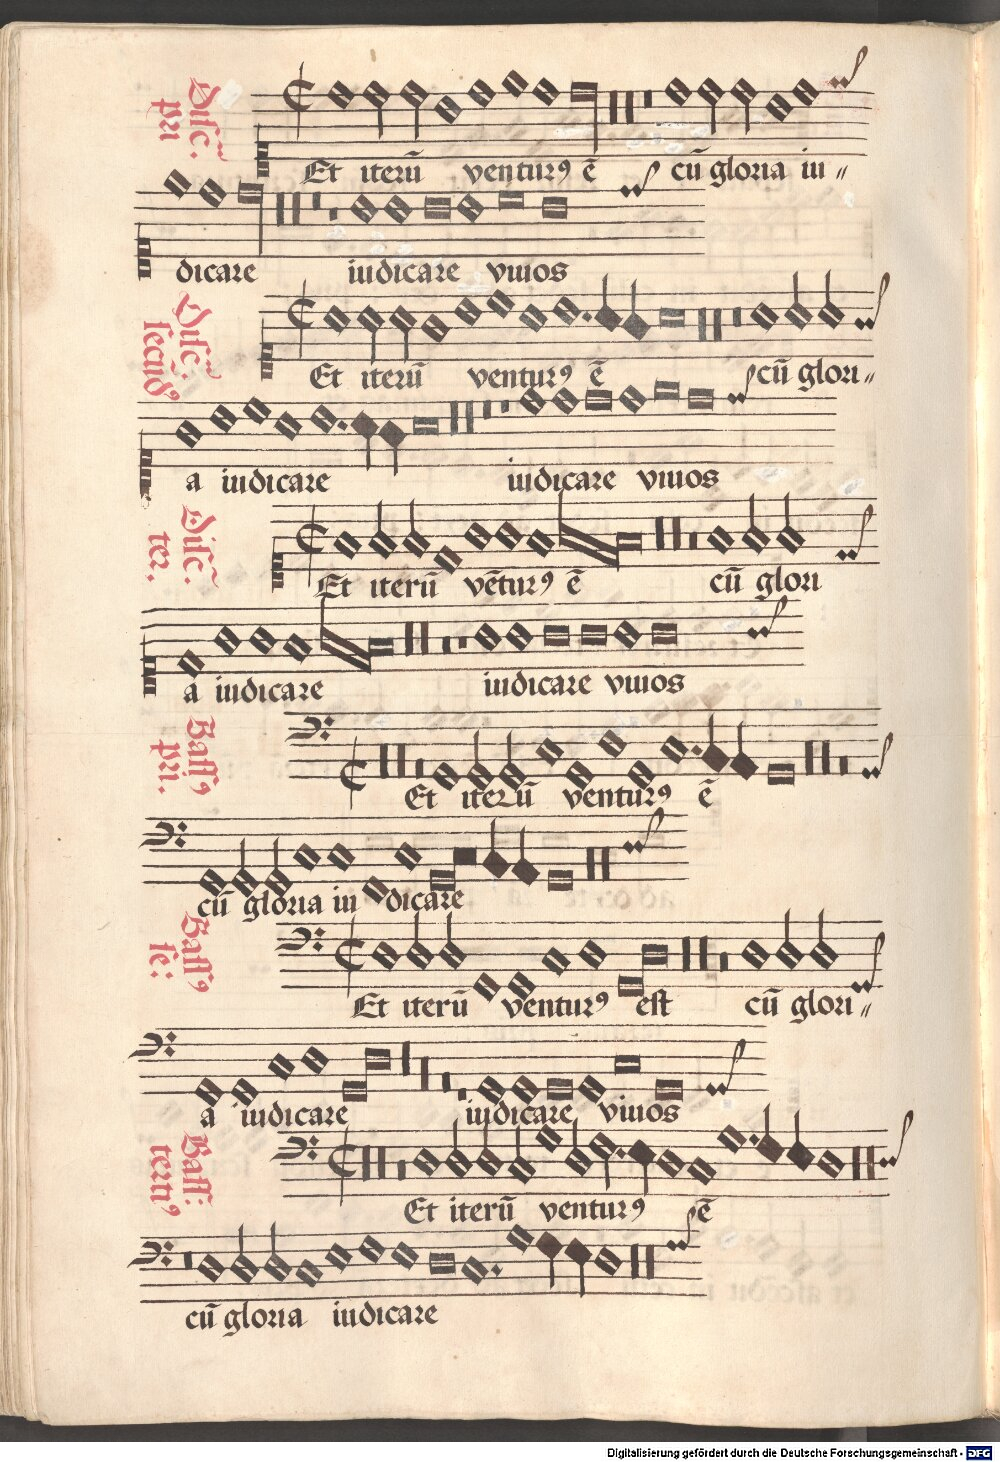 Disc: pri
Et iterū venturꝯ ē cū gloria iu〃
dicare iudicare viuos
Disc: secūdꝯ
Et iterū venturꝯ ē cū glori〃
a iudicare iudicare viuos
Disc: ter.
Et iterū vēturꝯ ē cū glori
a iudicare iudicare viuos
Bassꝯ pri.
Et iterū venturꝯ ē
cū gloria iu dicare
Bassꝯ se:
Et iterū venturꝯ est cū glori〃
a iudicare iudicare viuos
Bass: tertiꝯ
Et iterū venturꝯ ē
cū gloria iudicare
Digitalisierung gefördert durch die Deutsche Forschungsgemeinschaft - DFG